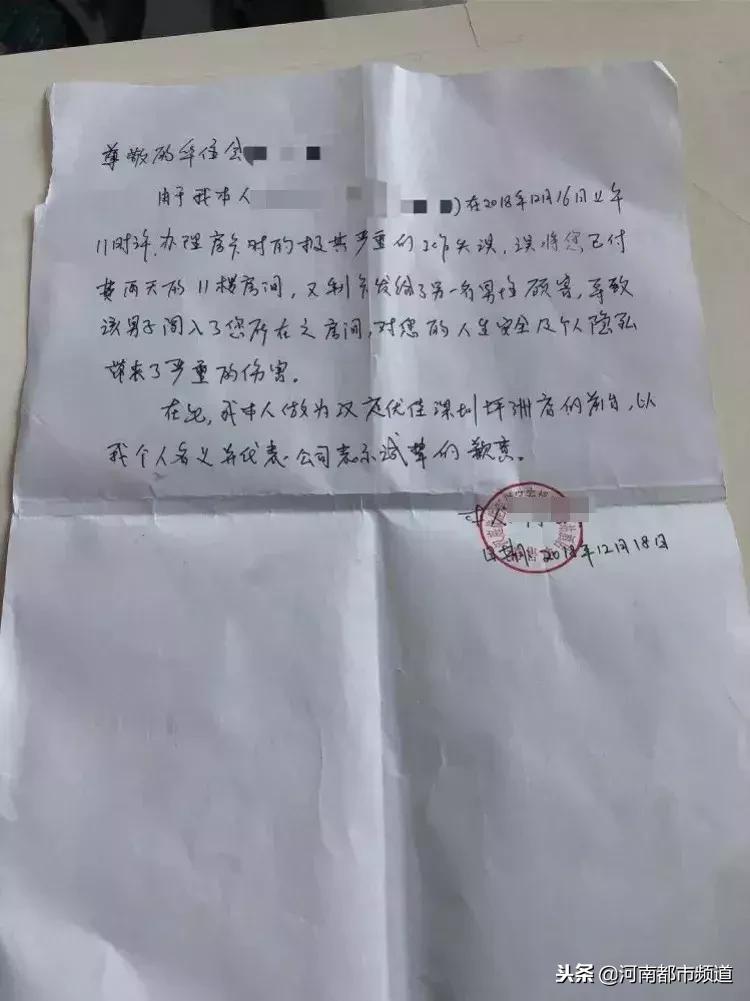 尊敬的华住会
由于我本人 )在2018年12月16日上午
11时许,办理房卡时的极其严重的工作失误,误将您已付
费两天的11楼房间,又制卡发给了另一名男性顾客,导致
该男子闯入了您所在之房间,对您的人生安全及个人隐私
带来了严重的伤害。
在此,我本人做为汉庭优佳深圳坪洲店的前台,以
我个人名义并代表公司表示诚挚的歉意。
日期:2018年12月18日
头条 @河南都市频道